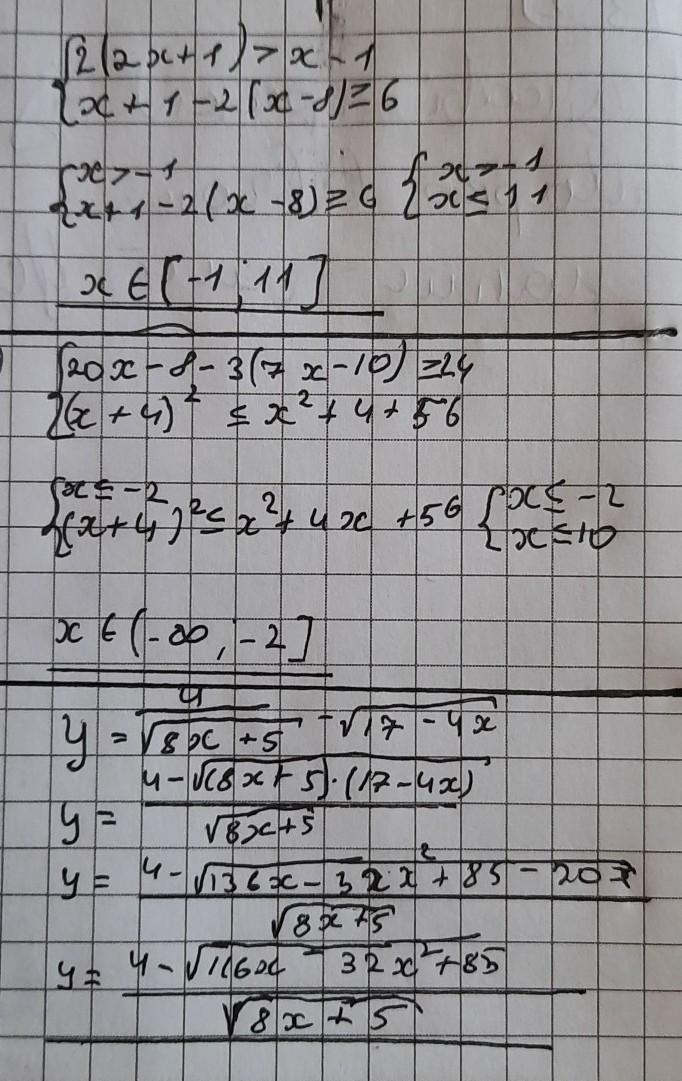 {2(2x+1) > x - 1
{x + 1 - 2(x-8) ≥ 6
{x > -1 {x > -1
{x+1 - 2(x - 8) ≥ 6 {x ≤ 11
x ∈ [-1; 11]
{20x - 8 - 3(7x - 10) ≥ 24
{(x + 4)² ≤ x² + 4 + 56
{x ≤ -2 {x ≤ -2
{(x+4)² ≤ x² + 4x + 56 {x ≤ 10
x ∈ (-∞, -2]
y = 4/√(8x + 5) - √(17 - 4x)
y = (4 - √((8x + 5)·(17 - 4x)))/√(8x+5)
y = (4 - √(136x - 32x² + 85 - 20x))/√(8x+5)
y = (4 - √(116x - 32x² + 85))/√(8x + 5)